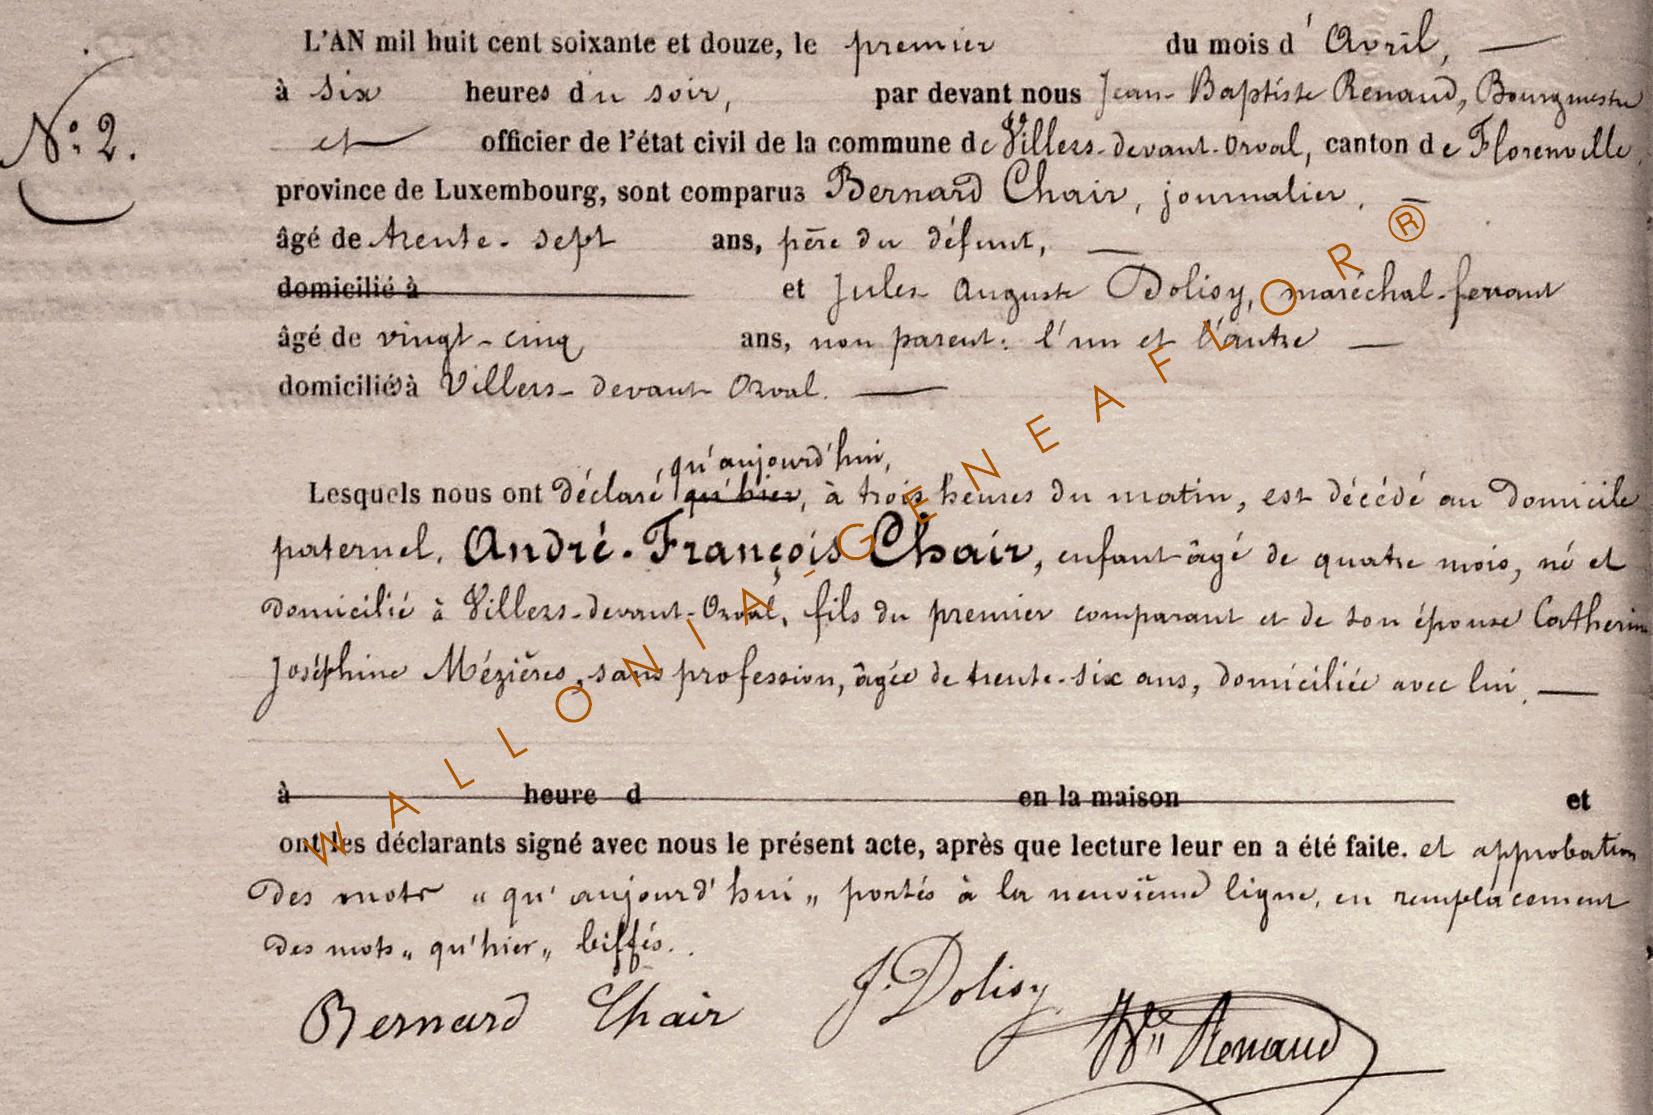 L'AN mil huit cent soixante et douze, le premier du mois d'Avril,
N° 2.
à six heures du soir, par devant nous Jean-Baptiste Renaud, Bourgmestre
et officier de l'état civil de la commune de Villers-devant-Orval, canton de Florenville,
province de Luxembourg, sont comparus Bernard Chair, journalier,
âgé de trente-sept ans, père du défunt,
domicilié à et Jules Auguste Dolisy, maréchal-ferrant
âgé de vingt-cinq ans, non parent: l'un et l'autre
domiciliés à Villers-devant-Orval.
qu'aujourd'hui,
Lesquels nous ont déclaré qu'hier, à trois heures du matin, est décédé au domicile
paternel, André-François Chair, enfant âgé de quatre mois, né et
domicilié à Villers-devant-Orval, fils du premier comparant et de son épouse Catherine
Joséphine Mézières, sans profession, âgée de trente-six ans, domiciliée avec lui.
à heure d en la maison et
ont les déclarants signé avec nous le présent acte, après que lecture leur en a été faite. et approbation
des mots "qu'aujourd'hui" portés à la neuvième ligne, en remplacement
des mots "qu'hier" biffés.
Bernard Chair J. Dolisy Renaud
WALLONIA-GENEAFLOR®